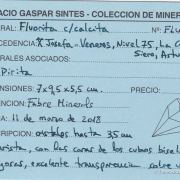 ACIO GASPAR SINTES - COLECCION DE MINER
RAL: Fluorita c/calcita Nº FLu
CEDENCIA: X Josefa - Veneros, Nivel 75, La C
Siero, Astur
RALES ASOCIADOS:
Pirita
ENSIONES: 7 x 9,5 x 5,5 cm.
EN: Fabre Minerals
11 de marzo de 2018
RIPCION: cristales hasta 3,5 cm
arista, con las caras de cubos bisel
goras, excelente transparencia sobre